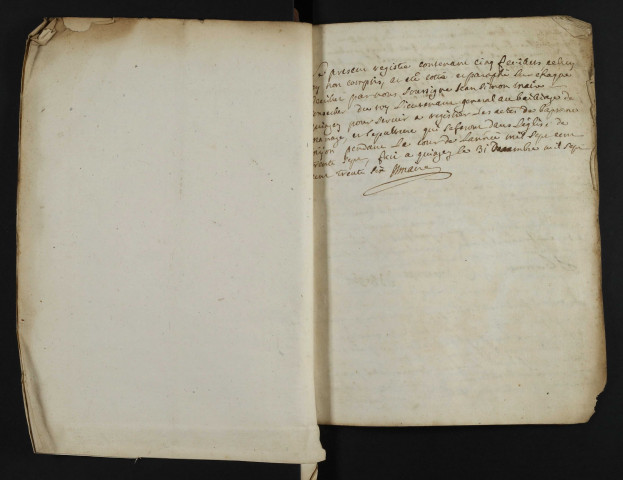 present registre contenant cinq feuillets celuy
cy non compris, a esté cotté et paraphé sur chaque
feuillet par nous soussigné Jean Simon maire
conseiller du roy Lieutenant general au bailliage de
quingey pour servir a registrer les actes de baptesme
mariage et sepulture qui se feront dans l'église de
pendant le cour de l'année mil sept cent
trente sept, fait a quingey le 31 Decembre mil sept
cent trente six Maire